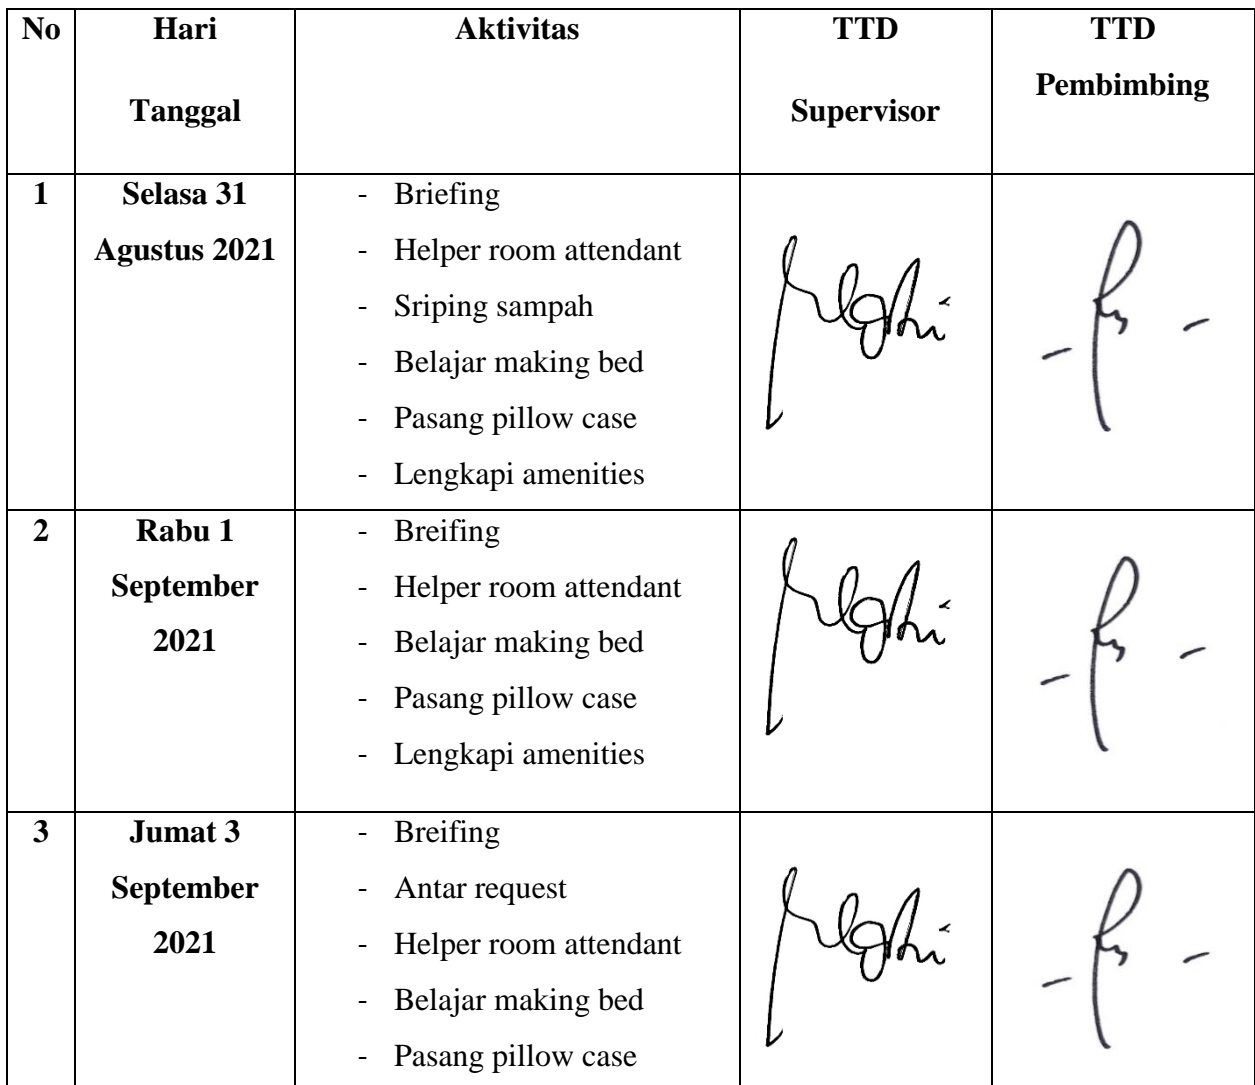 No Hari Tanggal Aktivitas TTD Supervisor TTD Pembimbing
1 Selasa 31 Agustus 2021
- Briefing
- Helper room attendant
- Sriping sampah
- Belajar making bed
- Pasang pillow case
- Lengkapi amenities
2 Rabu 1 September 2021
- Breifing
- Helper room attendant
- Belajar making bed
- Pasang pillow case
- Lengkapi amenities
3 Jumat 3 September 2021
- Breifing
- Antar request
- Helper room attendant
- Belajar making bed
- Pasang pillow case